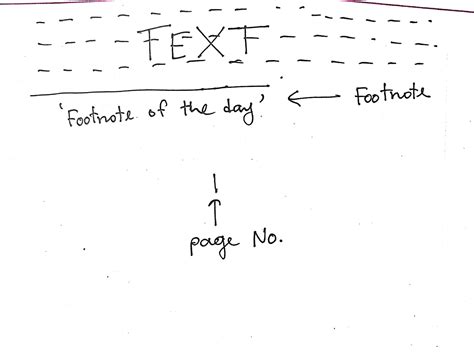 TEXT
'Footnote of the day' ← Footnote
1
↑
page No.